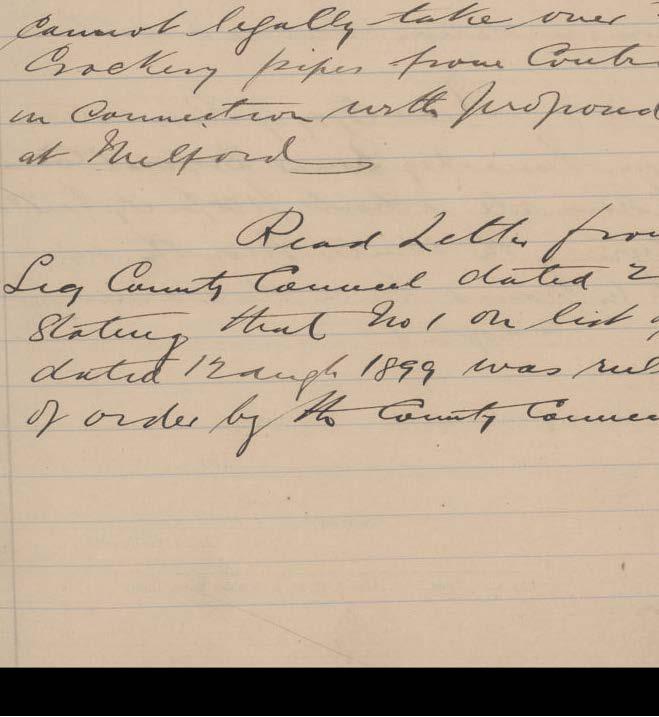 cannot legally take over
Crockery pipes from Contr
in connection with propound
at Milford
Read Letter from
Sec County Council dated 2
Stating that No 1 on list
dated 12 augt 1899 was rul
of order by the County Counc